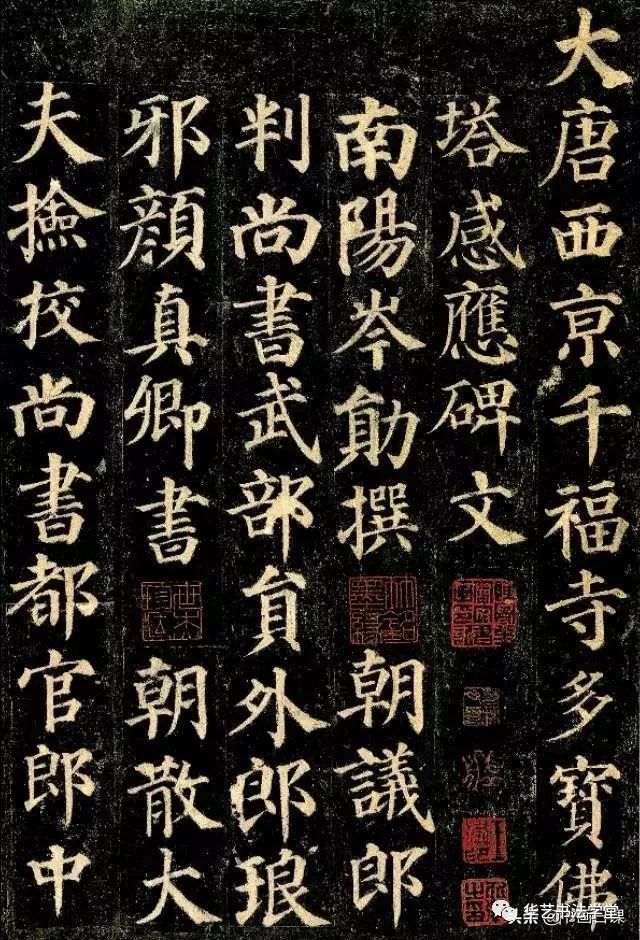 大唐西亰千福寺多寶佛
塔感應碑文
南陽岑勛撰 朝議郎
判尚書武部貟外郎琅
邪顔真卿書 朝散大
夫撿校尚書都官郎中
华艺书法学堂